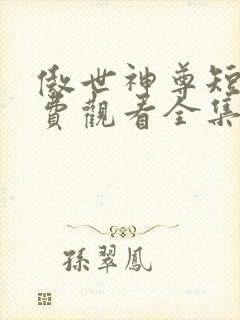 傲世神尊短
費觀看全集
孫翠鳳